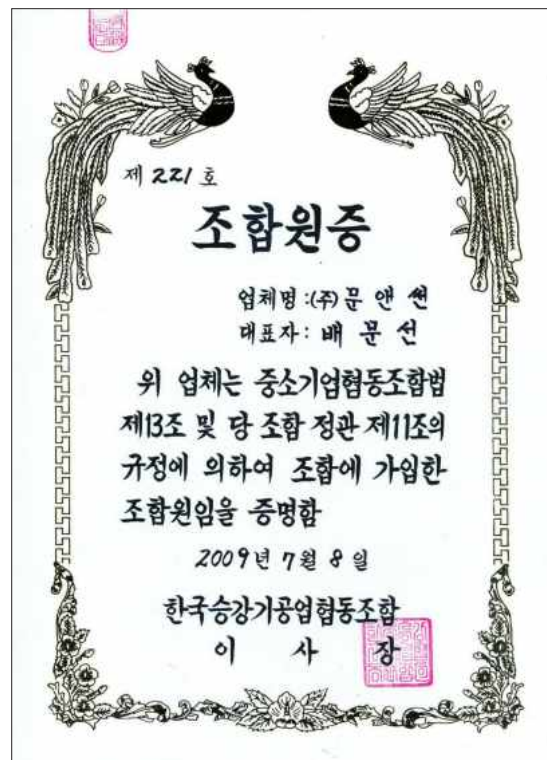 제 221 호
조합원증
업체명 : (주) 문 앤 썬
대표자 : 배 문 선
위 업체는 중소기업협동조합법
제13조 및 당 조합 정관 제11조의
규정에 의하여 조합에 가입한
조합원임을 증명함
2009년 7월 8일
한국승강기공업협동조합
이 사 장